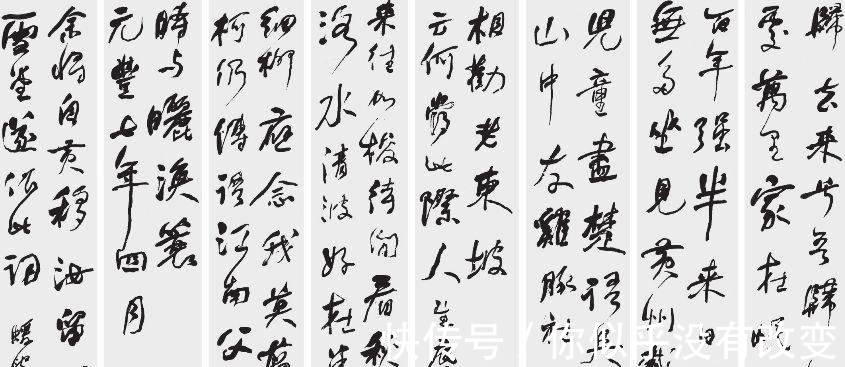 歸去来兮吾歸
處萬里家在岷
百年强半来日
無多坐見黄州
兒童盡楚語吴
山中友雞豚社
相勸老東坡
云何當此際人生底
来往如梭待閒看秋
洛水清波好在
細柳應念我莫剪
柯仍傳語江南父
時与曬漁蓑
元豐七年四月
余将自黄移汝留
雪堂遂作此詞
快传号 / 你似乎没有改变